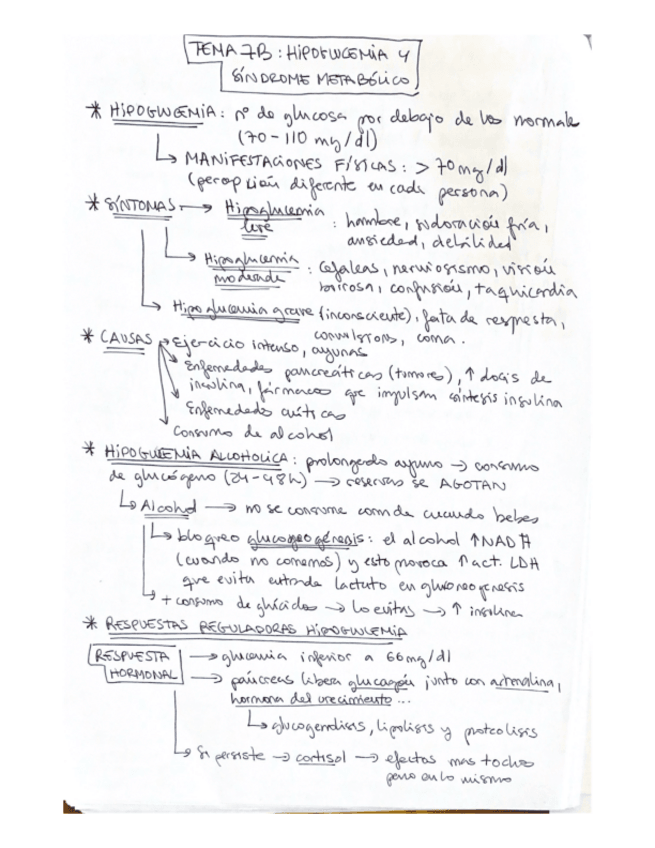 TEMA 7B: HIPOGLUCEMIA Y
SÍNDROME METABÓLICO
* HIPOGLUCEMIA: nº de glucosa por debajo de los normales
(70-110 mg/dl)
↳ MANIFESTACIONES FÍSICAS: > 70 mg/dl
(percepción diferente en cada persona)
* SÍNTOMAS → Hipoglucemia leve : hambre, sudoración fría,
ansiedad, debilidad
↳ Hipoglucemia moderada : Cefaleas, nerviosismo, visión
borrosa, confusión, taquicardia
↳ Hipoglucemia grave (inconsciente), falta de respuesta,
convulsions, coma.
* CAUSAS → Ejercicio intenso, ayunas
Enfermedades pancreáticas (tumores), ↑ dosis de
insulina, fármacos que impulsan síntesis insulina
Enfermedades críticas
Consumo de alcohol
* HIPOGLUCEMIA ALCOHOLICA: prolongando ayuno → consumo
de glucógeno (24-48h) → reservas se AGOTAN
↳ Alcohol → no se consume comida cuando bebes
↳ bloqueo glucogeogénesis: el alcohol ↑ NADH
(cuando no comemos) y esto provoca ↑ act. LDH
que evita entrada lactato en gluconeogenesis
↳ + consumo de glúcidos → lo evitas → ↑ insulina
* RESPUESTAS REGULADORAS HIPOGLUCEMIA
RESPUESTA HORMONAL → glucemia inferior a 66 mg/dl
→ páncreas libera glucagón junto con adrenalina,
hormona del crecimiento...
↳ glucogenolisis, lipolisis y proteolisis
↳ Si persiste → cortisol → efectos mas tochos
pero en lo mismo